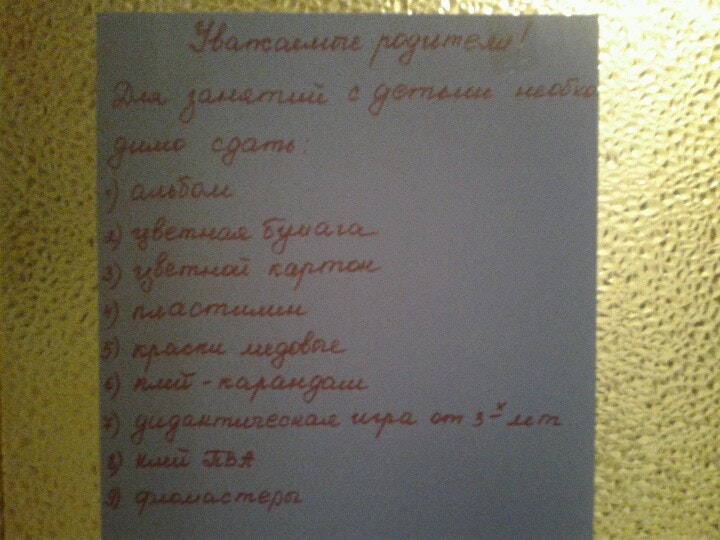 Уважаемые родители!
Для занятий с детьми необхо
димо сдать:
1) альбом
2) цветная бумага
3) цветной картон
4) пластилин
5) краски медовые
6) клей-карандаш
7) дидактическая игра от 3-х лет
8) клей ПВА
9) фломастеры